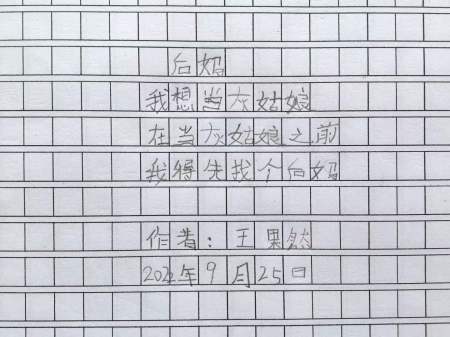 后妈
我想当灰姑娘
在当灰姑娘之前
我得先找个后妈
作者：王果然
2022年9月25日